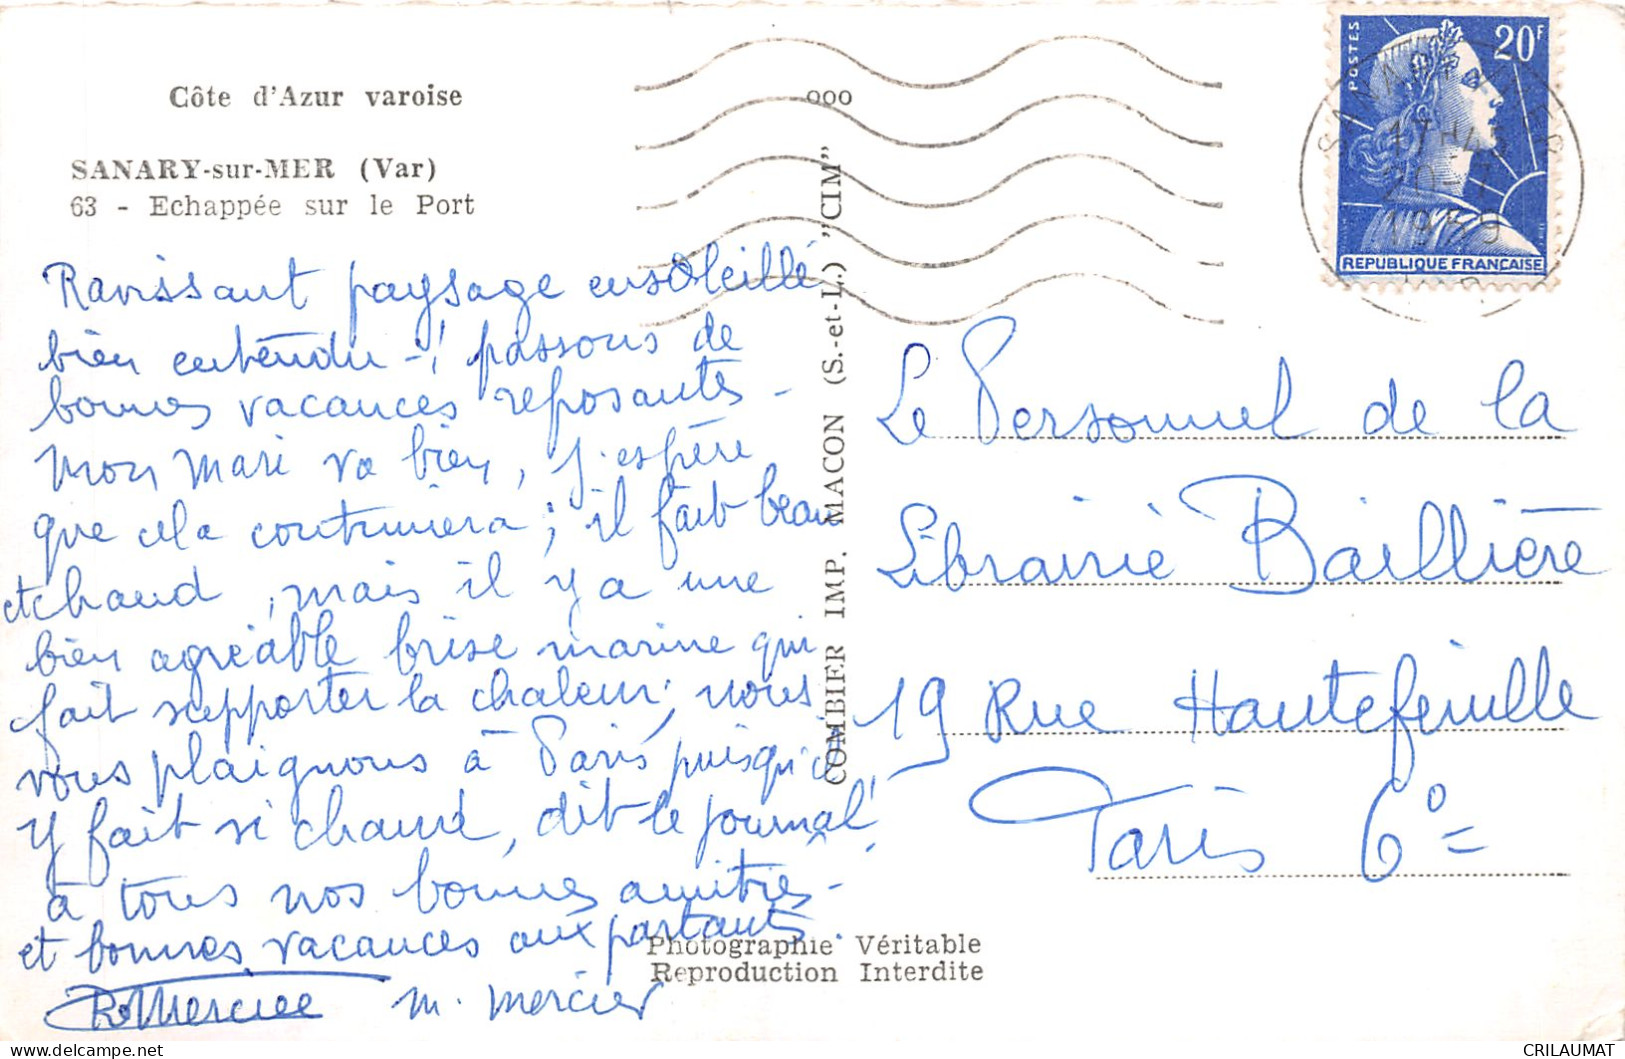 Côte d'Azur varoise
SANARY-sur-MER (Var)
63 - Echappée sur le Port
Ravissant paysage ensoleillé
bien entendu -! passons de
bonnes vacances reposantes -
mon mari va bien, j'espère
que cela continuera ; il fait beau
et chaud, mais il y a une
bien agréable brise marine qui
fait supporter la chaleur, nous
vous plaignons à Paris, puisqu'il
y fait si chaud, dit le journal!
à tous nos bonnes amitiés -
et bonnes vacances aux partants.
R. Mercier M. Mercier
ooo
COMBIER IMP. MACON (S.-et-L.) "CIM"
Photographie Véritable
Reproduction Interdite
POSTES
20F
REPUBLIQUE FRANÇAISE
SANARY S MER
17H45
20-7
1959
Le Personnel de la
Librairie Baillière
19 Rue Hautefeuille
Paris 6e
CRILAUMAT